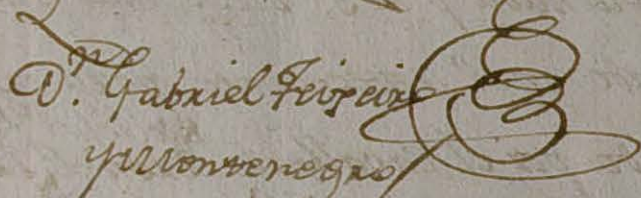 Dn. Gabriel Feixeiro
y Montenegro